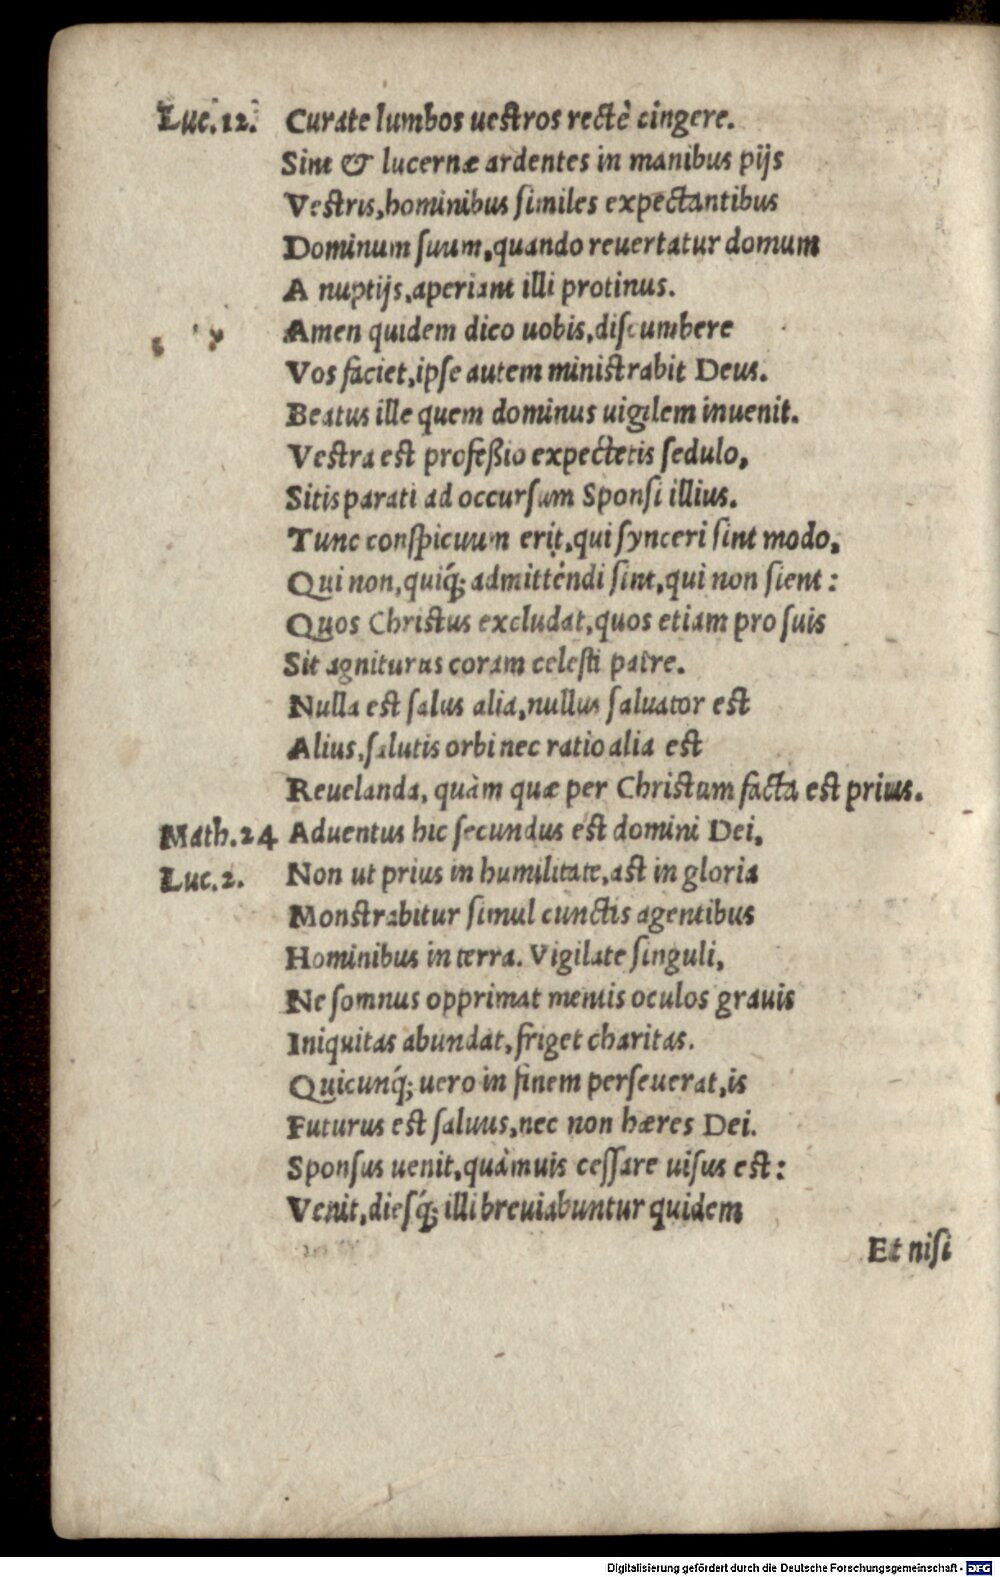 Luc.12. Curate lumbos uestros rectè cingere.
Sint & lucernæ ardentes in manibus pijs
Vestris, hominibus similes expectantibus
Dominum suum, quando reuertatur domum
A nuptijs, aperiant illi protinus.
Amen quidem dico uobis, discumbere
Vos faciet, ipse autem ministrabit Deus.
Beatus ille quem dominus uigilem inuenit.
Vestra est profeßio expectetis sedulo,
Sitis parati ad occursum Sponsi illius.
Tunc conspicuum erit, qui synceri sint modo,
Qui non, quiq́; admittendi sint, qui non sient:
Quos Christus excludat, quos etiam pro suis
Sit agniturus coram celesti patre.
Nulla est salus alia, nullus saluator est
Alius, salutis orbi nec ratio alia est
Reuelanda, quàm quæ per Christum facta est prius.
Math.24 Aduentus hic secundus est domini Dei,
Luc.2. Non ut prius in humilitate, ast in gloria
Monstrabitur simul cunctis agentibus
Hominibus in terra. Vigilate singuli,
Ne somnus opprimat mentis oculos grauis
Iniquitas abundat, friget charitas.
Quicunq́; uero in finem perseuerat, is
Futurus est saluus, nec non hæres Dei.
Sponsus uenit, quàmuis cessare uisus est:
Venit, diesq́; illi breuiabuntur quidem
Et nisi
Digitalisierung gefördert durch die Deutsche Forschungsgemeinschaft - DFG